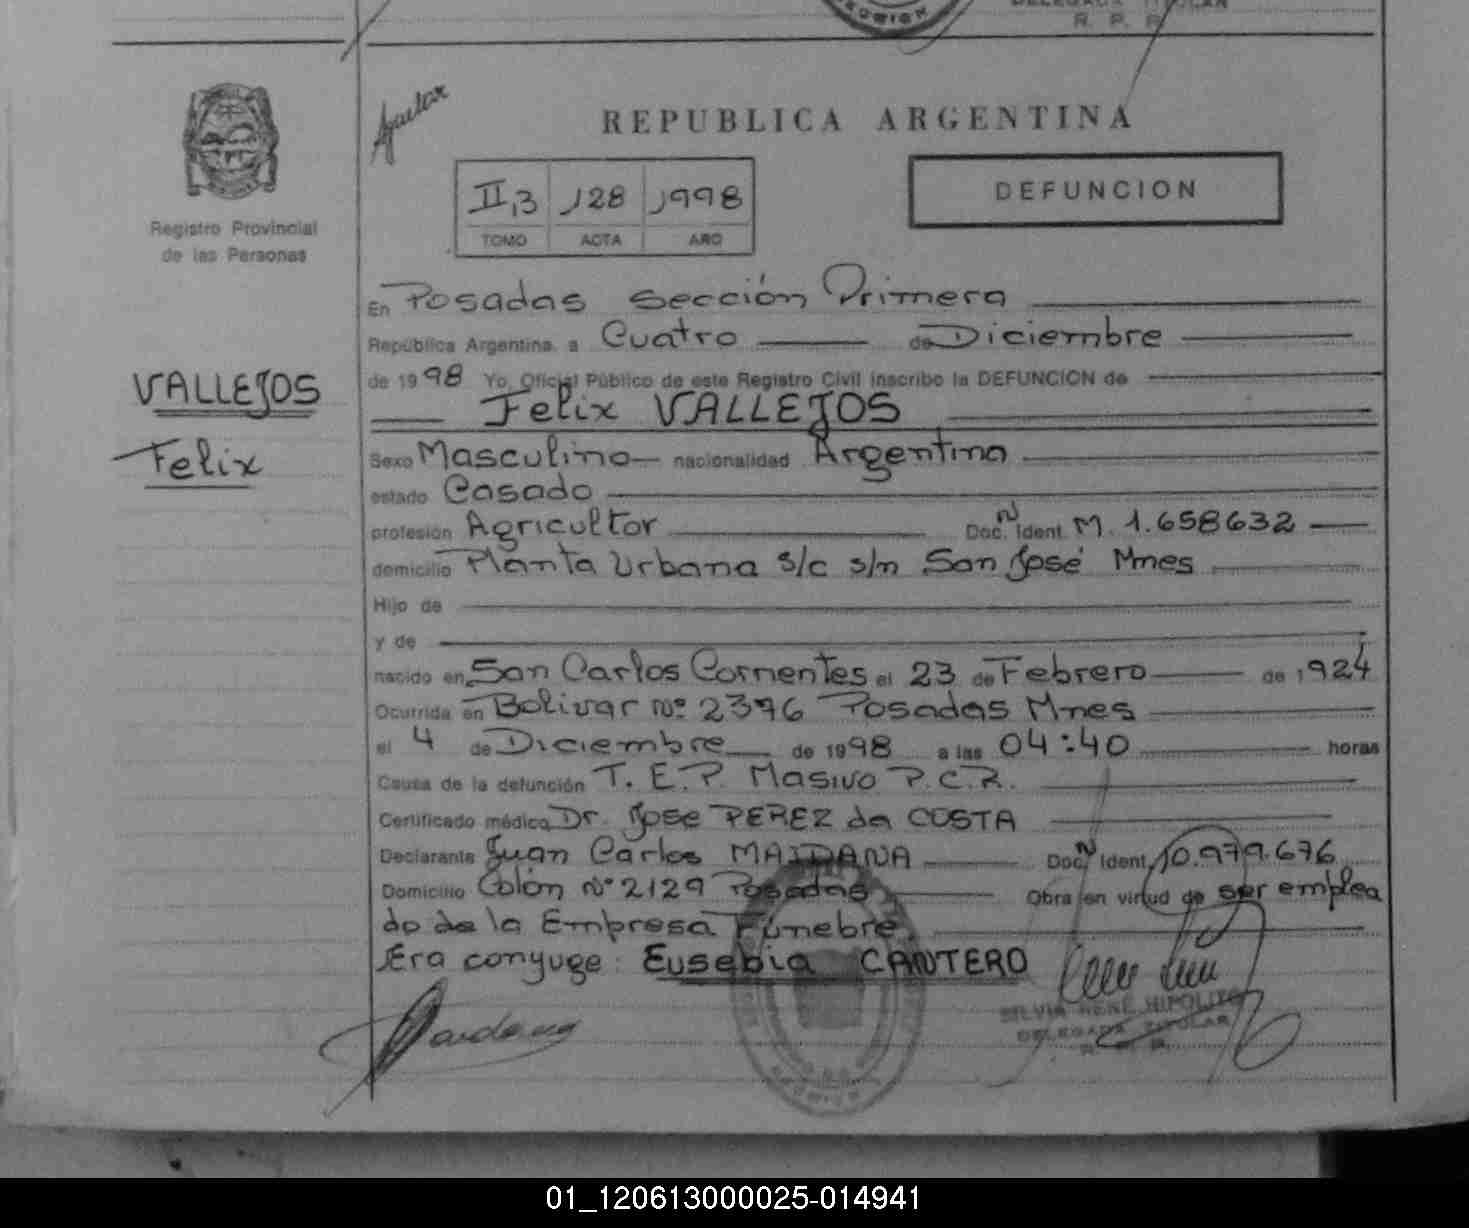 DELEGADA TITULAR
R. P. P.
Registro Provincial
de las Personas
VALLEJOS
Felix
REPUBLICA ARGENTINA
II,3 128 1998
TOMO ACTA AÑO
DEFUNCION
En Posadas Sección Primera
República Argentina, a Cuatro de Diciembre
de 1998 Yo, Oficial Público de este Registro Civil inscribo la DEFUNCION de
Felix VALLEJOS
Sexo Masculino nacionalidad Argentina
estado Casado
profesión Agricultor Doc. Ident. M. 1.658632
domicilio Planta Urbana s/c s/n San José Mnes
Hijo de
y de
nacido en San Carlos Corrientes el 23 de Febrero de 1924
Ocurrida en Bolivar Nº 2376 Posadas Mnes
el 4 de Diciembre de 1998 a las 04:40 horas
Causa de la defunción T. E. P. Masivo P.C.R.
Certificado médico Dr. Jose PEREZ da COSTA
Declarante Juan Carlos MAIDANA Doc. Ident. 10.979.676
Domicilio Colón Nº 2129 Posadas Obra en virtud de ser emplea
do de la Empresa Fúnebre
Era conyuge: Eusebia CANTERO
SILVIA RENE HIPOLITO
DELEGADA TITULAR
R. P. P.
01_120613000025-014941